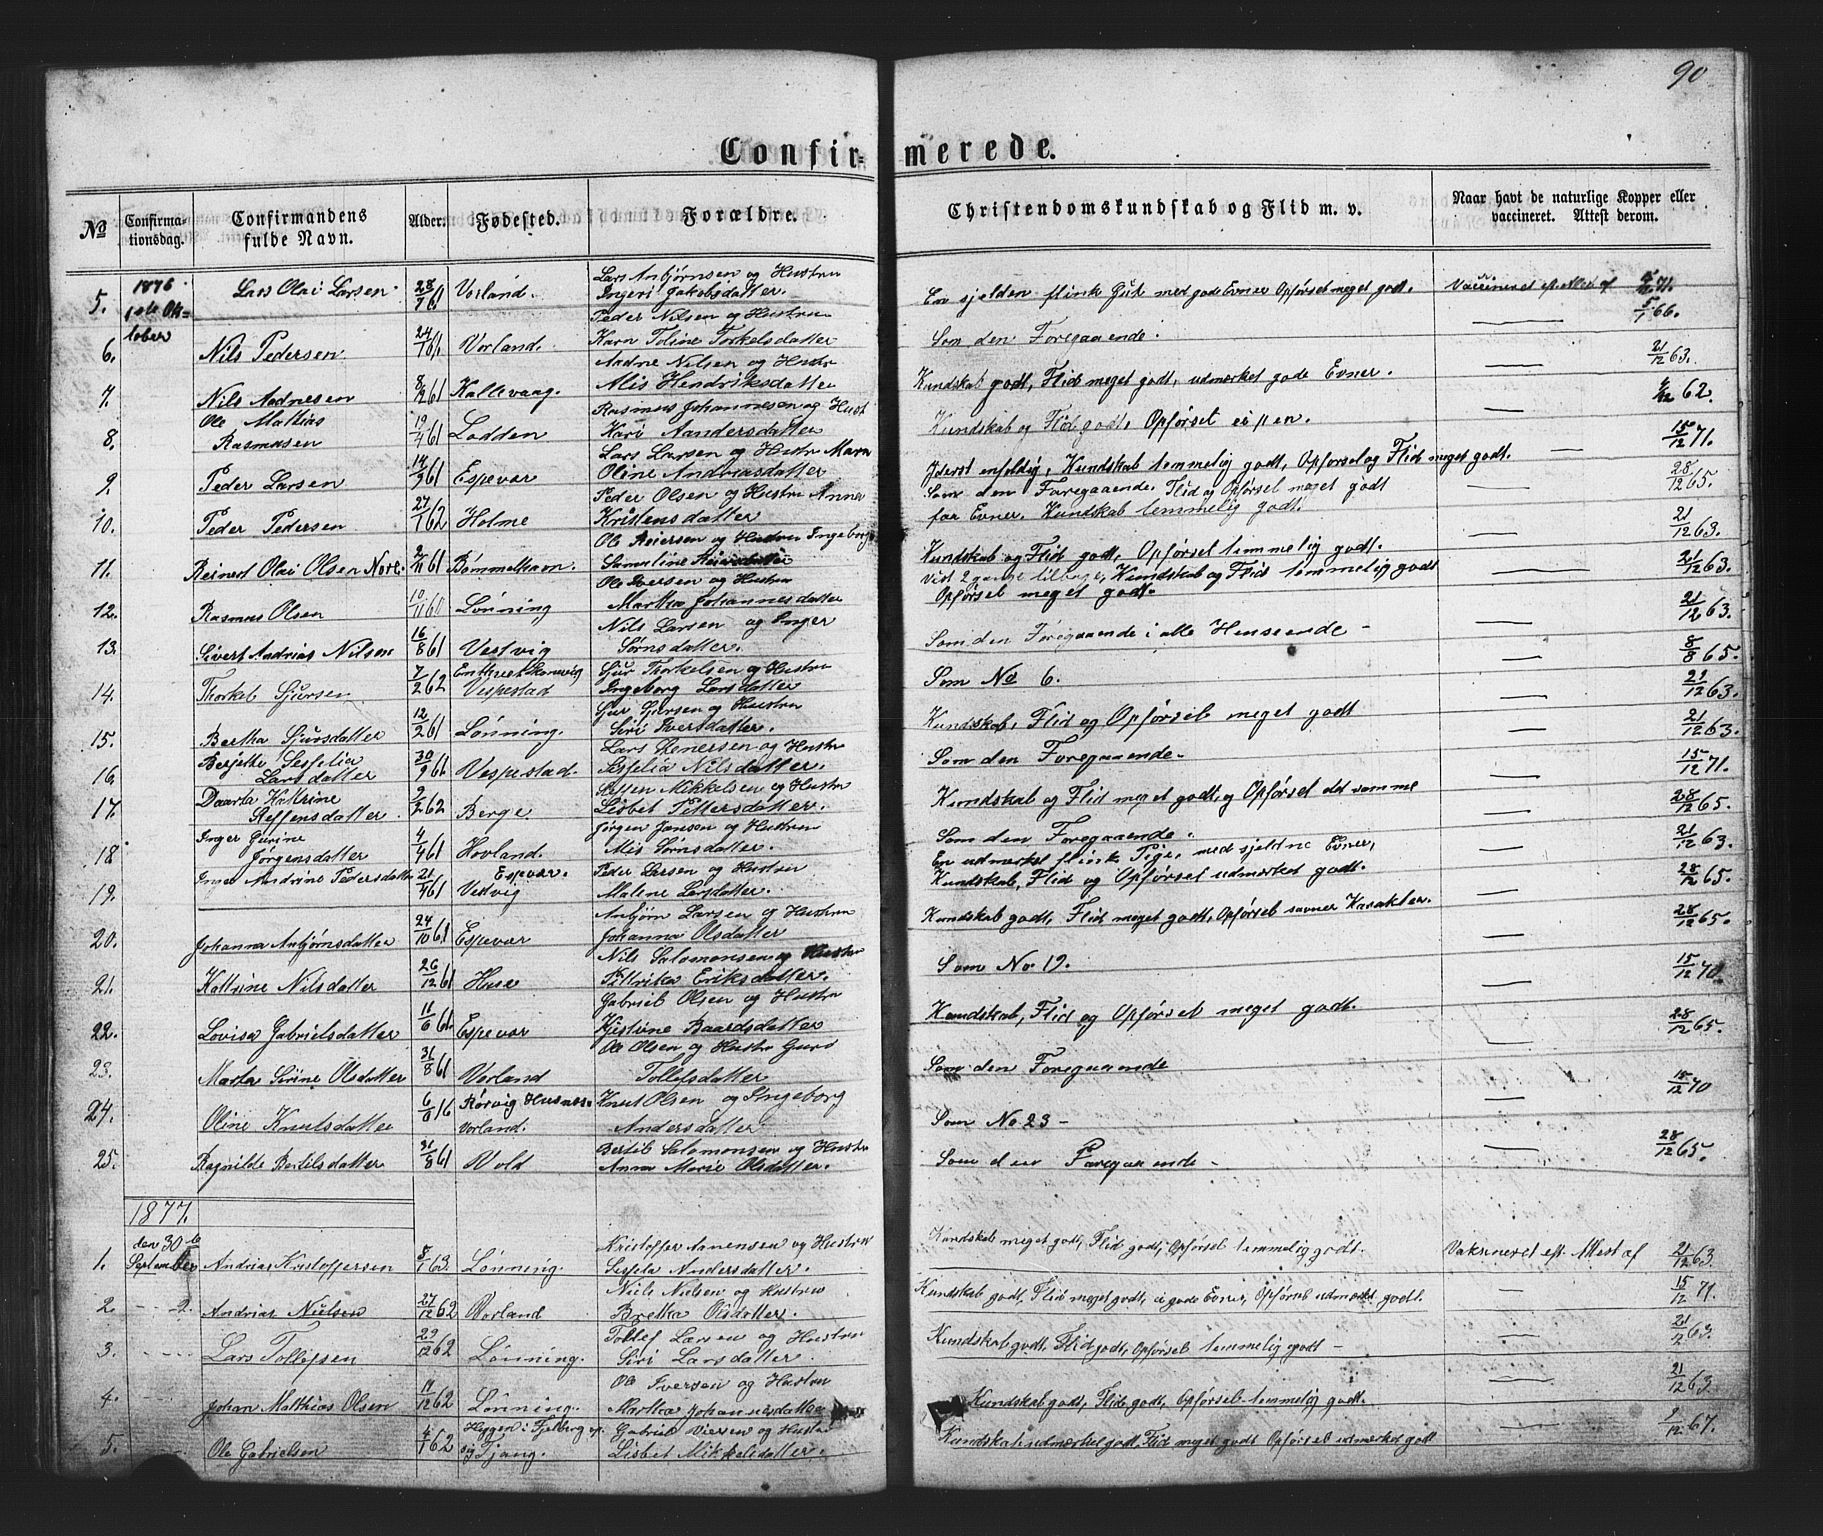 90
Confirmerede.
No Confirmationsdag. Confirmandens fulde Navn. Alder. Fødested. Forældre. Christendomskundskab og Flid m. v. Naar havt de naturlige Kopper eller vaccineret. Attest derom.
1876. 1ste Oktober
5. Lars Olai Larsen 28/7 61 Vorland. Lars Anbjørnsen og Hustru Ingeri Jakobsdatter. En sjelden flink Gut med gode Evner Opførsel meget godt. Vaccineret eft. Attest af 71.
6. Nils Pedersen 24/7 61 Vorland. Peder Nilsen og Hustru Karn Toline Torkelsdatter Som den Foregaaende. — 5/1 66.
7. Nils Aadnesen 8/2 61 Kallevaag. Aadne Nilsen og Hustr Alis Hendriksdatter Kundskab godt, Flid meget godt, udmerket gode Evner. — 21/12 63.
8. Ole Mathias Rasmusen 19/4 61 Lodden Rasmus Johannesen og Hust Kari Aandersdatter Kundskab og Flid godt, Opførsel ei pen. — 62.
9. Peder Larsen 14/9 61 Espevær Lars Larsen og Hustr Maria Oline Andreasdatter Yderst enfoldig, Kundskab temmelig godt, Opførsel og Flid meget godt. — 15/12 71.
10. Peder Pedersen 27/1 62 Holme Peder Olsen og Hustru Anna Kristensdatter Som den Foregaaende. Flid og Opførsel meget godt faa Evner. Kundskab temmelig godt. — 28/12 65.
11. Reinert Olai Olsen Nore. 2/11 61 Bømmelhavn. Ole Reiersen og Hustru Ingeborg Samueline Kundskab og Flid godt, Opførsel temmelig godt. — 21/12 63.
12. Rasmus Olsen 10/11 60 Lønning Ole Iversen og Hustru Martha Johannesdatter Vist 2 gange tilbage, Kundskab og Flid temmelig godt Opførsel meget godt. — 21/12 63.
13. Sivert Andrias Nilsen 16/8 61 Vestvig Nils Larsen og Inger Sørnsdatter. Som den Foregaaende i alle Henseende — 21/12 63.
14. Thorkel Sjursen 7/2 62 Vespestad Sjur Thorkelsen og Hustru Ingeborg Larsdatter Som No 6. — 8/8 65.
15. Bertha Sjursdatter 12/2 61 Lønning. Sjur Sjursen og Hustru Siri Iversdatter. Kundskab, Flid og Opførsel meget godt — 21/12 63.
16. Berjitte Sesselia Larsdatter 30/9 61 Vespestad. Lars Stenersen og Hustru Sesselia Nilsdatter. Som den Foregaaende. — 21/12 63.
17. Daarta Kattrine Steffensdatter. 2/2 62 Berge Steffen Mikkelsen og Hustr Lisbet Pittersdatter. Kundskab og Flid meget godt, og Opførsel det samme — 15/12 71.
18. Inger Gurine Jørgensdatter 4/4 61 Hovland. Jørgen Jansen og Hustru Alis Sørnsdatter. Som den Foregaaende. — 28/12 65.
19. Andrine Pedersdatter 21/4 61 Espevær. Vedvig Peder Larsen og Hustru Malene Larsdatter. En udmerket flink Pige, med sjeldne Evner, Kundskab, Flid og Opførsel udmerket godt. — 21/12 63.
20. Johanna Anbjørnsdatter 24/10 61 Espevær Anbjørn Larsen og Hustru Johanna Olsdatter Kundskab godt, Flid meget godt, Opførsel savner Karakter. — 28/12 65.
21. Kattrine Nilsdatter 26/12 61 Huse Nils Salomonsen og Hustru Pittrika Eriksdatter. Som No. 19. — 28/12 65.
22. Lovisa Gabrielsdatter 11/6 61. Espevær Gabriel Olsen og Hustru Kjistine Baardsdatter Kundskab, Flid og Opførsel meget godt. — 15/12 70
23. Marta Serine Olsdatter 31/8 61 Vorland Ole Olsen og Hustr Guro Tollefsdatter Som den Foregaaende — 28/12 65.
24. Oline Knutsdatter 6/6 Rørvig Husnes. Vorland. Knut Olsen og Ingeborg Andersdatter Som No. 23 — 15/12 70
25. Ragnilde Bertilsdatter 31/8 61 Vold Bertil Salomonsen og Hustr Anna Marie Olsdatter. Som den Foregaaende — 28/12 65.
1877.
den 30te September
1. Andrias Kristoffersen 8/1 63. Lønning. Kristoffer Aanensen og Hustru Sessela Andersdatter. Kundskab meget godt, Flid godt, Opførsel temmelig godt. Vaksineret eft. Attest af 21/12 63.
2. Andrias Nielsen 27/12 62 Vorland Niels Nielsen og Hustru Bretha Olsdatter. Kundskab godt, Flid meget godt, gode Evner, Opførsel udmerket godt. — 15/12 71.
3. Lars Tollefsen 29/12 62 Lønning. Tollef Larsen og Hustru Siri Larsdatter. Kundskab godt, Flid godt, Opførsel temmelig godt — 21/12 63.
4. Johan Matthias Olsen 14/12 62 Lønning. Ole Iversen og Hustru Martha Johannesdatter Kundskab godt, Flid godt, Opførsel temmelig godt. — 21/12 63.
5. Ole Gabrielsen 4/1 62 Hygen i Fjelberg sp. og Tjong. Gabriel Iversen og Hustru Lisbet Mikkelsdatter. Kundskab udmerket godt, Flid meget godt Opførsel udmerket godt — 9/12 67.